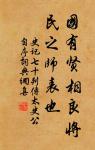 國有賢相良將
民之師表也
史记七十列传太史公
自序词典网集